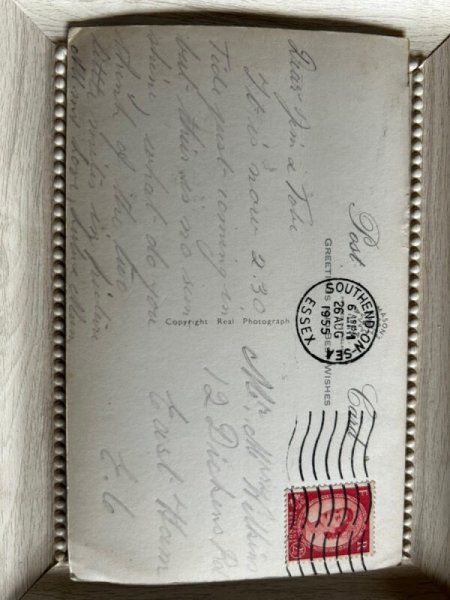 Post Card
GREETINGS & BEST WISHES
JASON'S
Copyright Real Photograph
SOUTHEND-ON-SEA
6 PM
26 AUG
1955
ESSEX
Dear Jim & Tobe
It is now 2.30
Tide just coming in
but there is no sun
shine, what do you
think of the two
All my love
Mr Mrs Wilkins
12 Dickens Rd
East Ham
E.6